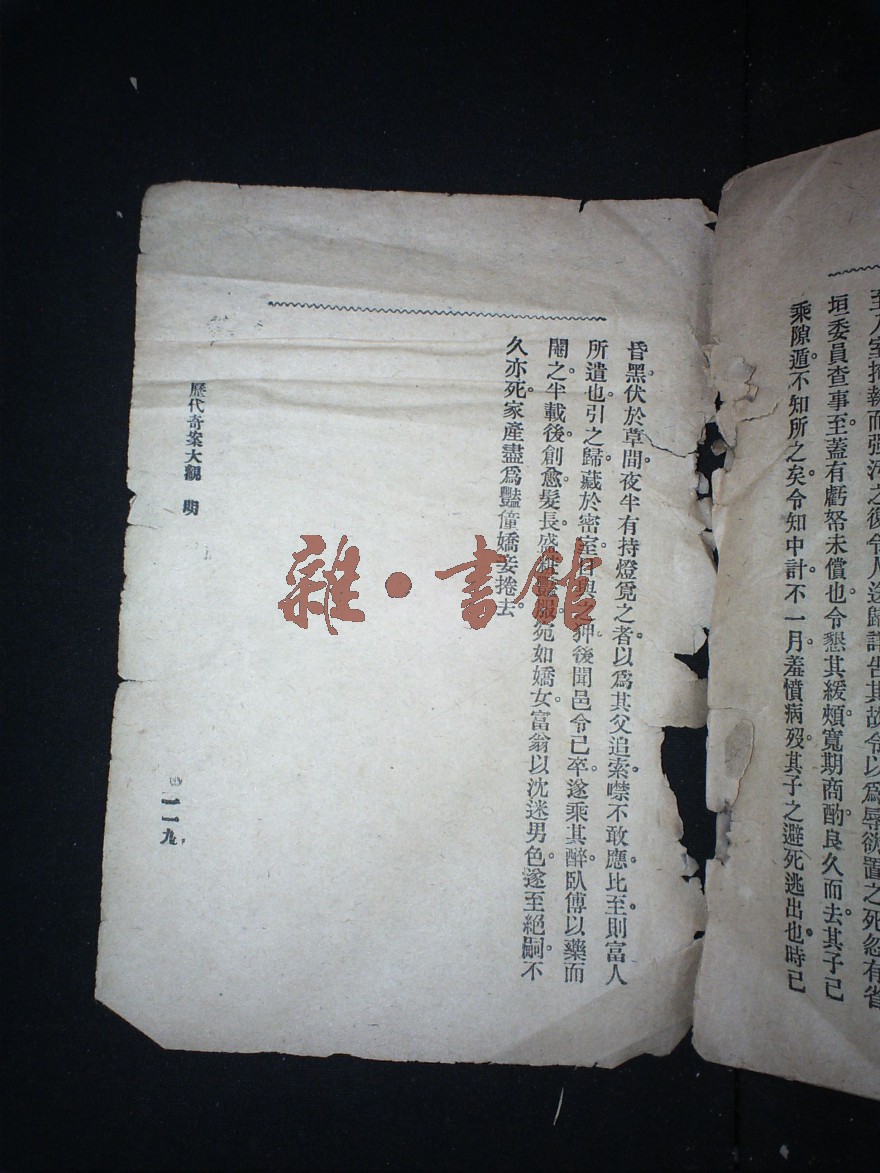 而强污之復令人送歸詳告其故令以爲辱欲置之死忽有省
垣委員查事至。蓋有虧帑未償也。令懇其緩頰寬期。商酌良久而去。其子已
乘隙遁。不知所之矣。令知中計。不一月羞憤病歿。其子之避死逃出也。時已
昏黑。伏於草間。夜半有持燈覓之者。以爲其父追索。噤不敢應。比至。則富人
所遣也。引之歸。藏於密室。日與之狎。後聞邑令已卒。遂乘其醉臥。傅以藥而
閹之。半載後創愈。髮長盛 服。宛如嬌女。富翁以沈迷男色。遂至絕嗣。不
久亦死。家產盡爲豔僮嬌妾捲去。
歷代奇案大觀 明
一一九
雜·書館